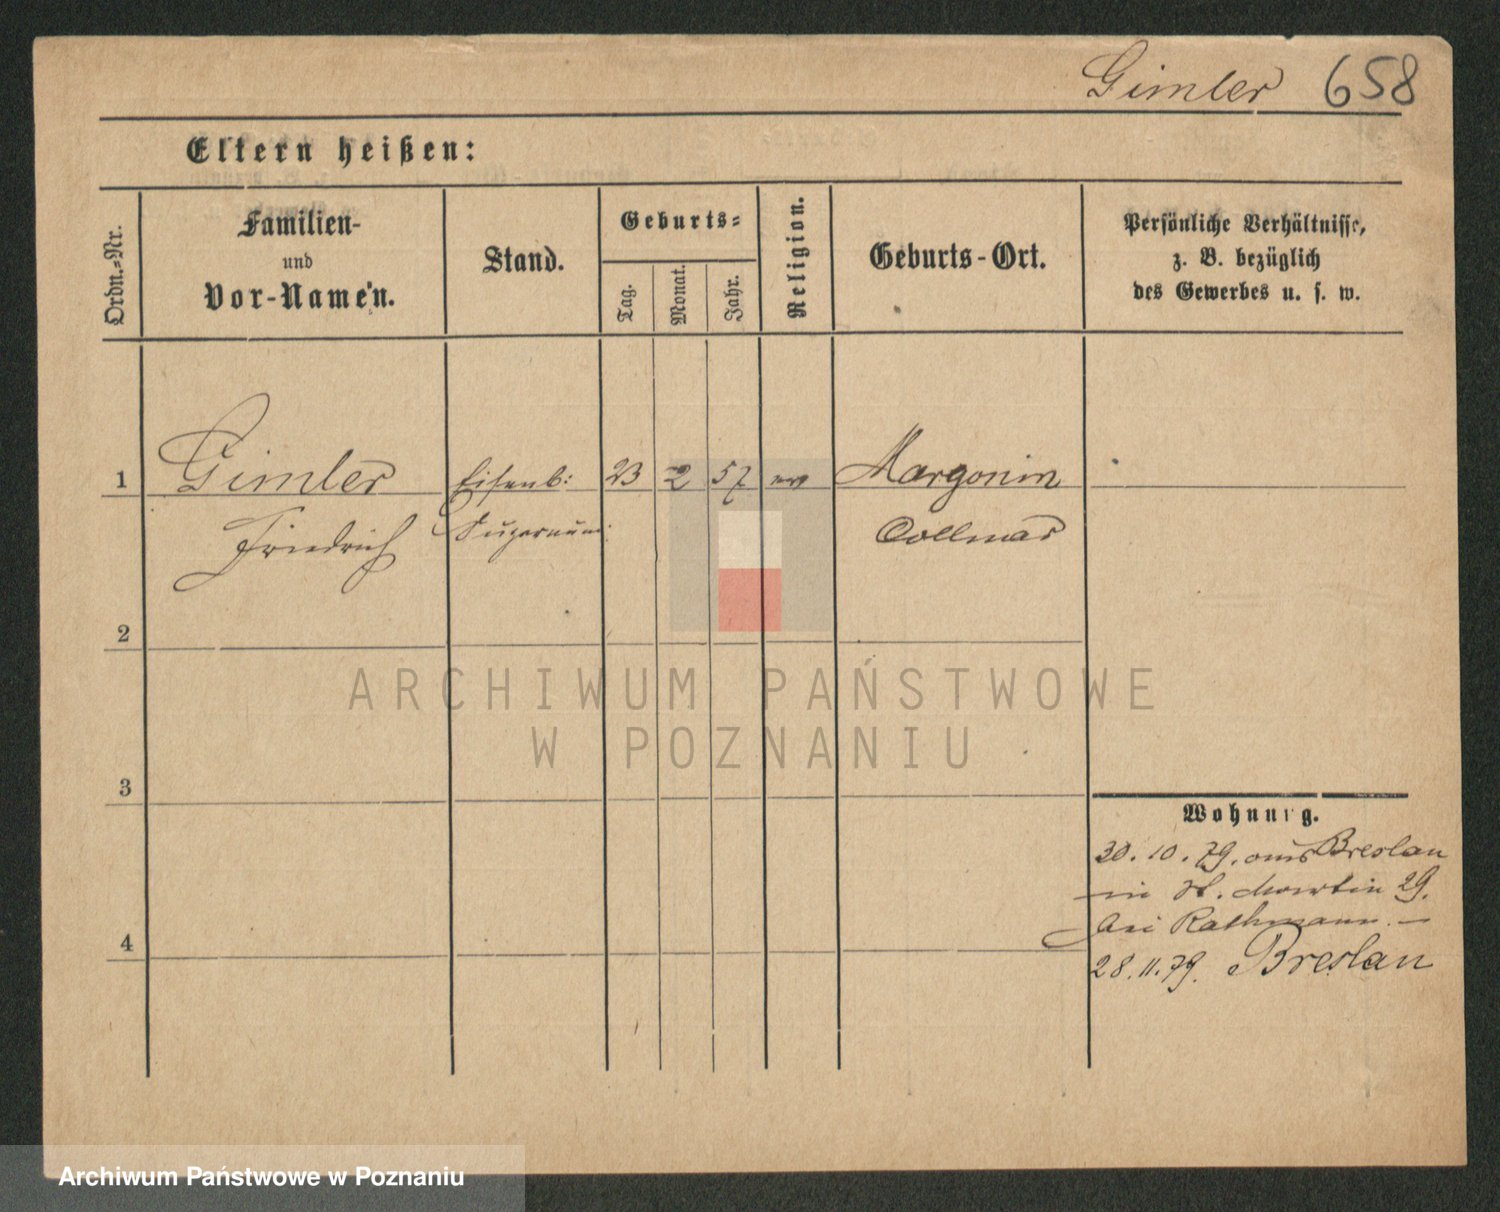 Gimler 658
Eltern heißen:
Ordn.-Nr.
Familien-
und
Vor-Namen.
Stand.
Geburts-
Tag.
Monat.
Jahr.
Religion.
Geburts-Ort.
Persönliche Verhältnisse,
z. B. bezüglich
des Gewerbes u. s. w.
1 Gimler Eisenb: 23 2 57 ev Margonin
Friedrich Supernum: Collmar
2
3
4
Wohnung.
30.10.79. aus Breslau
in St. Martin 29.
bei Rathmann. —
28.11.79. Breslau
ARCHIWUM PAŃSTWOWE
W POZNANIU
Archiwum Państwowe w Poznaniu